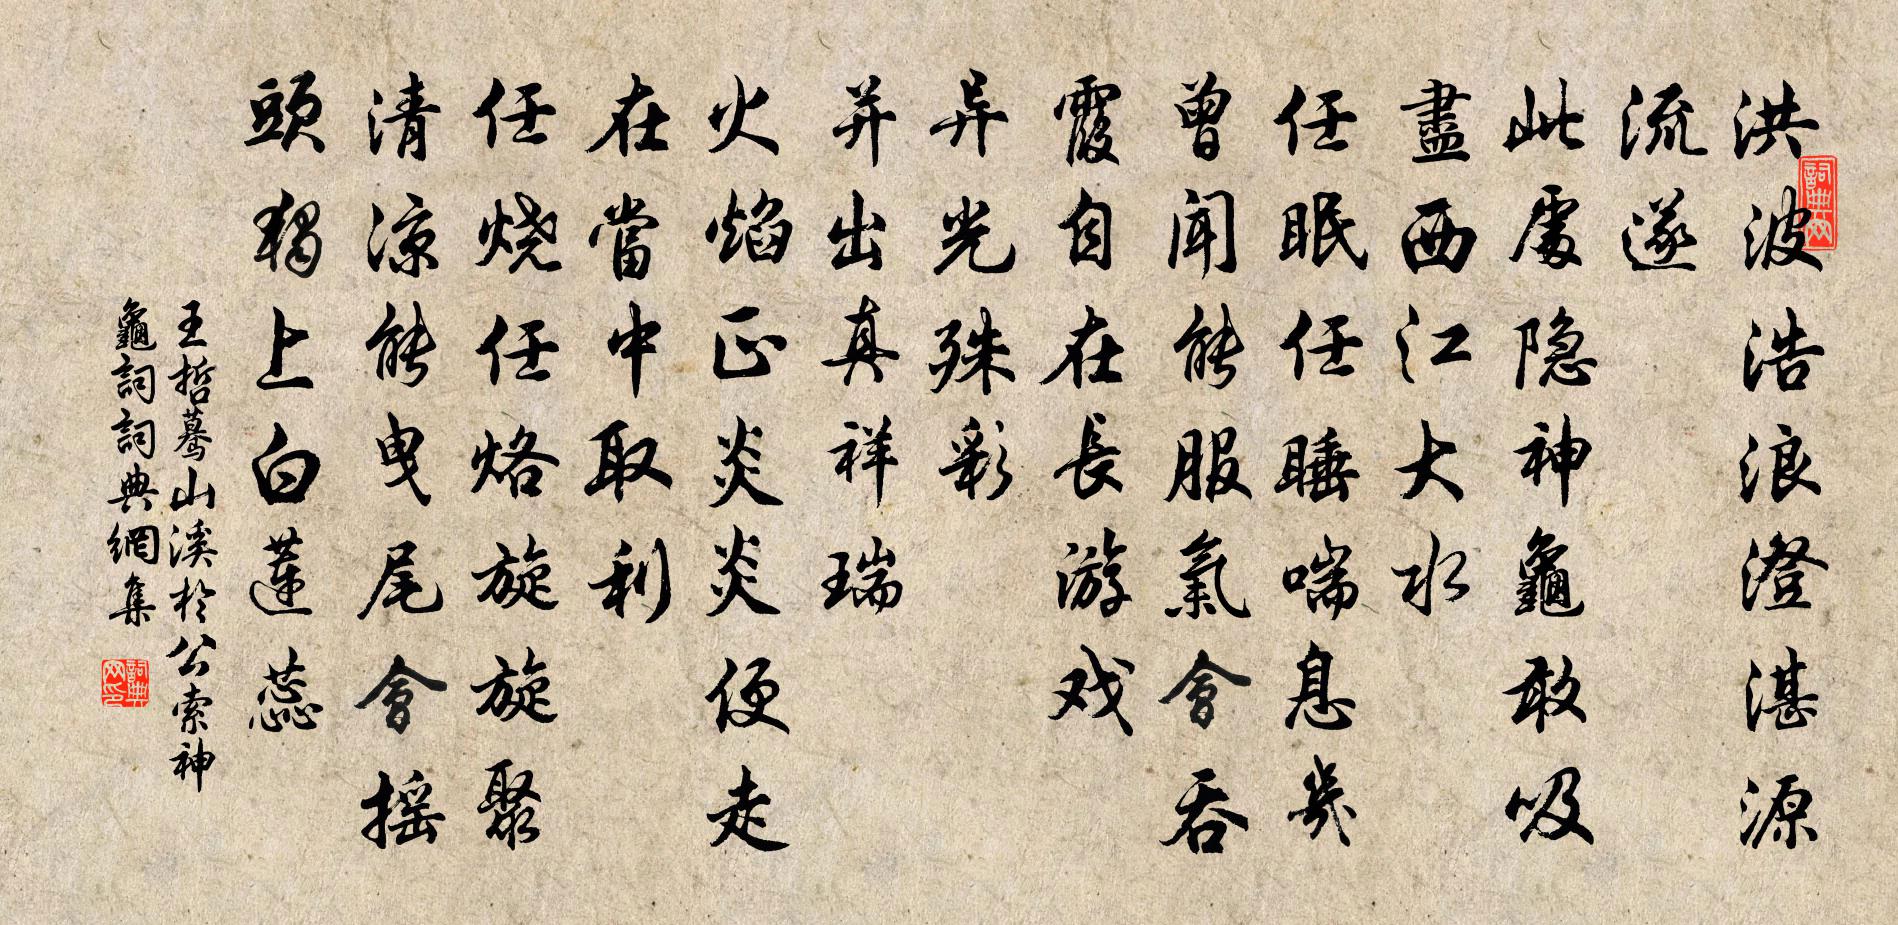 洪波浩浪澄湛源
流邃
此處隐神龜敢吸
盡西江大水
任眠任睡喘息幾
曾聞能服氣會吞
霞自在長游戏
异光殊彩
并出真祥瑞
火焰正炎炎便走
在當中取利
任烧任烙旋旋聚
清凉能曳尾會摇
頭獨上白蓮蕊
王哲蓦山溪於公索神
龜詞詞典網集
詞典网
詞典网印